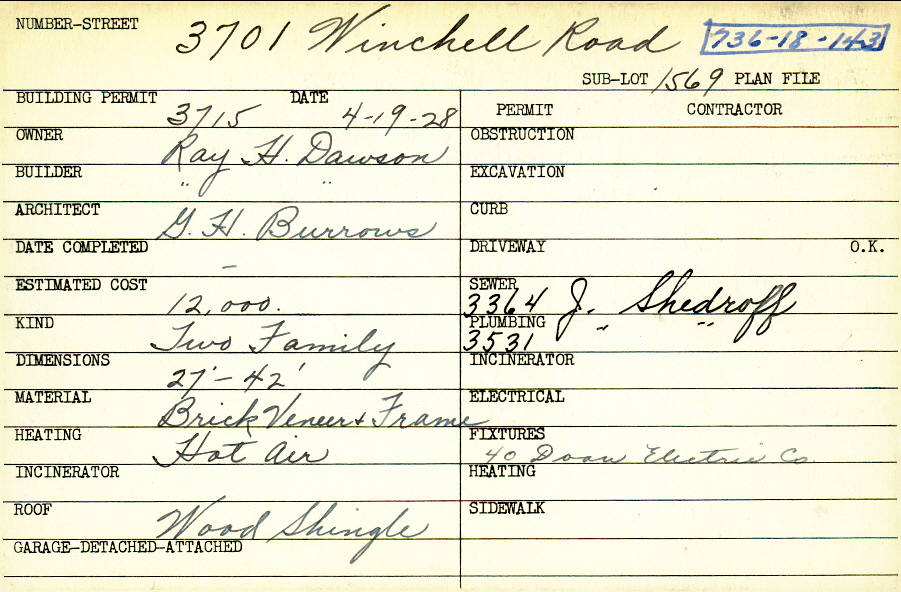 NUMBER-STREET 3701 Winchell Road 736-18-143
SUB-LOT 1569 PLAN FILE
BUILDING PERMIT 3715 DATE 4-19-28
PERMIT CONTRACTOR
OWNER Ray H. Dawson
OBSTRUCTION
BUILDER " "
EXCAVATION
ARCHITECT G. H. Burrows
CURB
DATE COMPLETED –
DRIVEWAY O.K.
ESTIMATED COST 12,000.
SEWER 3364 J. Shedroff
KIND Two Family
PLUMBING 3531 " "
DIMENSIONS 27' – 42'
INCINERATOR
MATERIAL Brick Veneer + Frame
ELECTRICAL
HEATING Hot Air
FIXTURES 40 Doan Electric Co
INCINERATOR
HEATING
ROOF Wood Shingle
SIDEWALK
GARAGE-DETACHED-ATTACHED